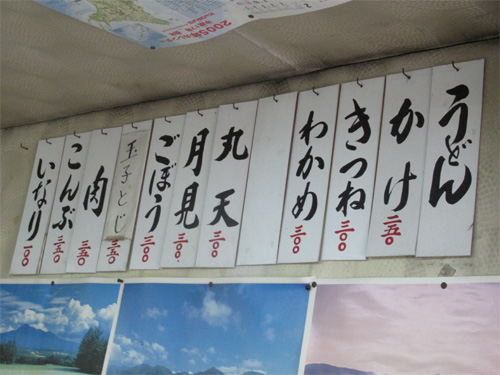 うどん
かけ 二五〇
きつね 三〇〇
わかめ 三〇〇
丸天 三〇〇
月見 三〇〇
ごぼう 三〇〇
玉子とじ
肉 三五〇
こんぶ 三五〇
いなり 一〇〇
2005年